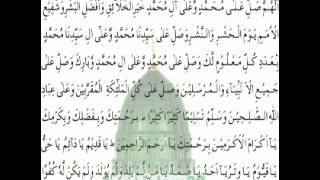 اَللّٰهُمَّ صَلِّ عَلٰى مُحَمَّدٍ وَّعَلٰى اٰلِ مُحَمَّدٍ خَيْرِ الْخَلَآئِقِ وَاَفْضَلِ الْبَشَرِ وَشَفِيْعِ
الْاُمَمِ يَوْمَ الْحَشْرِ وَالنَّشْرِ وَصَلِّ عَلٰى سَيِّدِنَا مُحَمَّدٍ وَّعَلٰى اٰلِ سَيِّدِنَا مُحَمَّدٍ
بِعَدَدِ كُلِّ مَعْلُوْمٍ لَّكَ وَصَلِّ عَلٰى مُحَمَّدٍ وَّعَلٰى اٰلِ مُحَمَّدٍ وَّبَارِكْ وَسَلِّمْ وَصَلِّ عَلٰى
جَمِيْعِ الْاَنْبِيَآءِ وَالْمُرْسَلِيْنَ وَصَلِّ عَلٰى كُلِّ الْمَلٰٓئِكَةِ الْمُقَرَّبِيْنَ وَعَلٰى عِبَادِ
اللهِ الصّٰلِحِيْنَ وَسَلِّمْ تَسْلِيْمًا كَثِيْرًا كَثِيْرًا بِرَحْمَتِكَ وَبِفَضْلِكَ وَبِكَرَمِكَ
يَآ اَكْرَمَ الْاَكْرَمِيْنَ بِرَحْمَتِكَ يَآ اَرْحَمَ الرَّاحِمِيْنَ يَا قَدِيْمُ يَا دَآئِمُ يَا حَيُّ
يَا قَيُّوْمُ يَا وِتْرُ يَآ اَحَدُ يَا صَمَدُ يَا مَنْ لَّمْ يَلِدْ وَلَمْ يُوْلَدْ وَلَمْ يَكُنْ لَّهٗ كُفُوًا